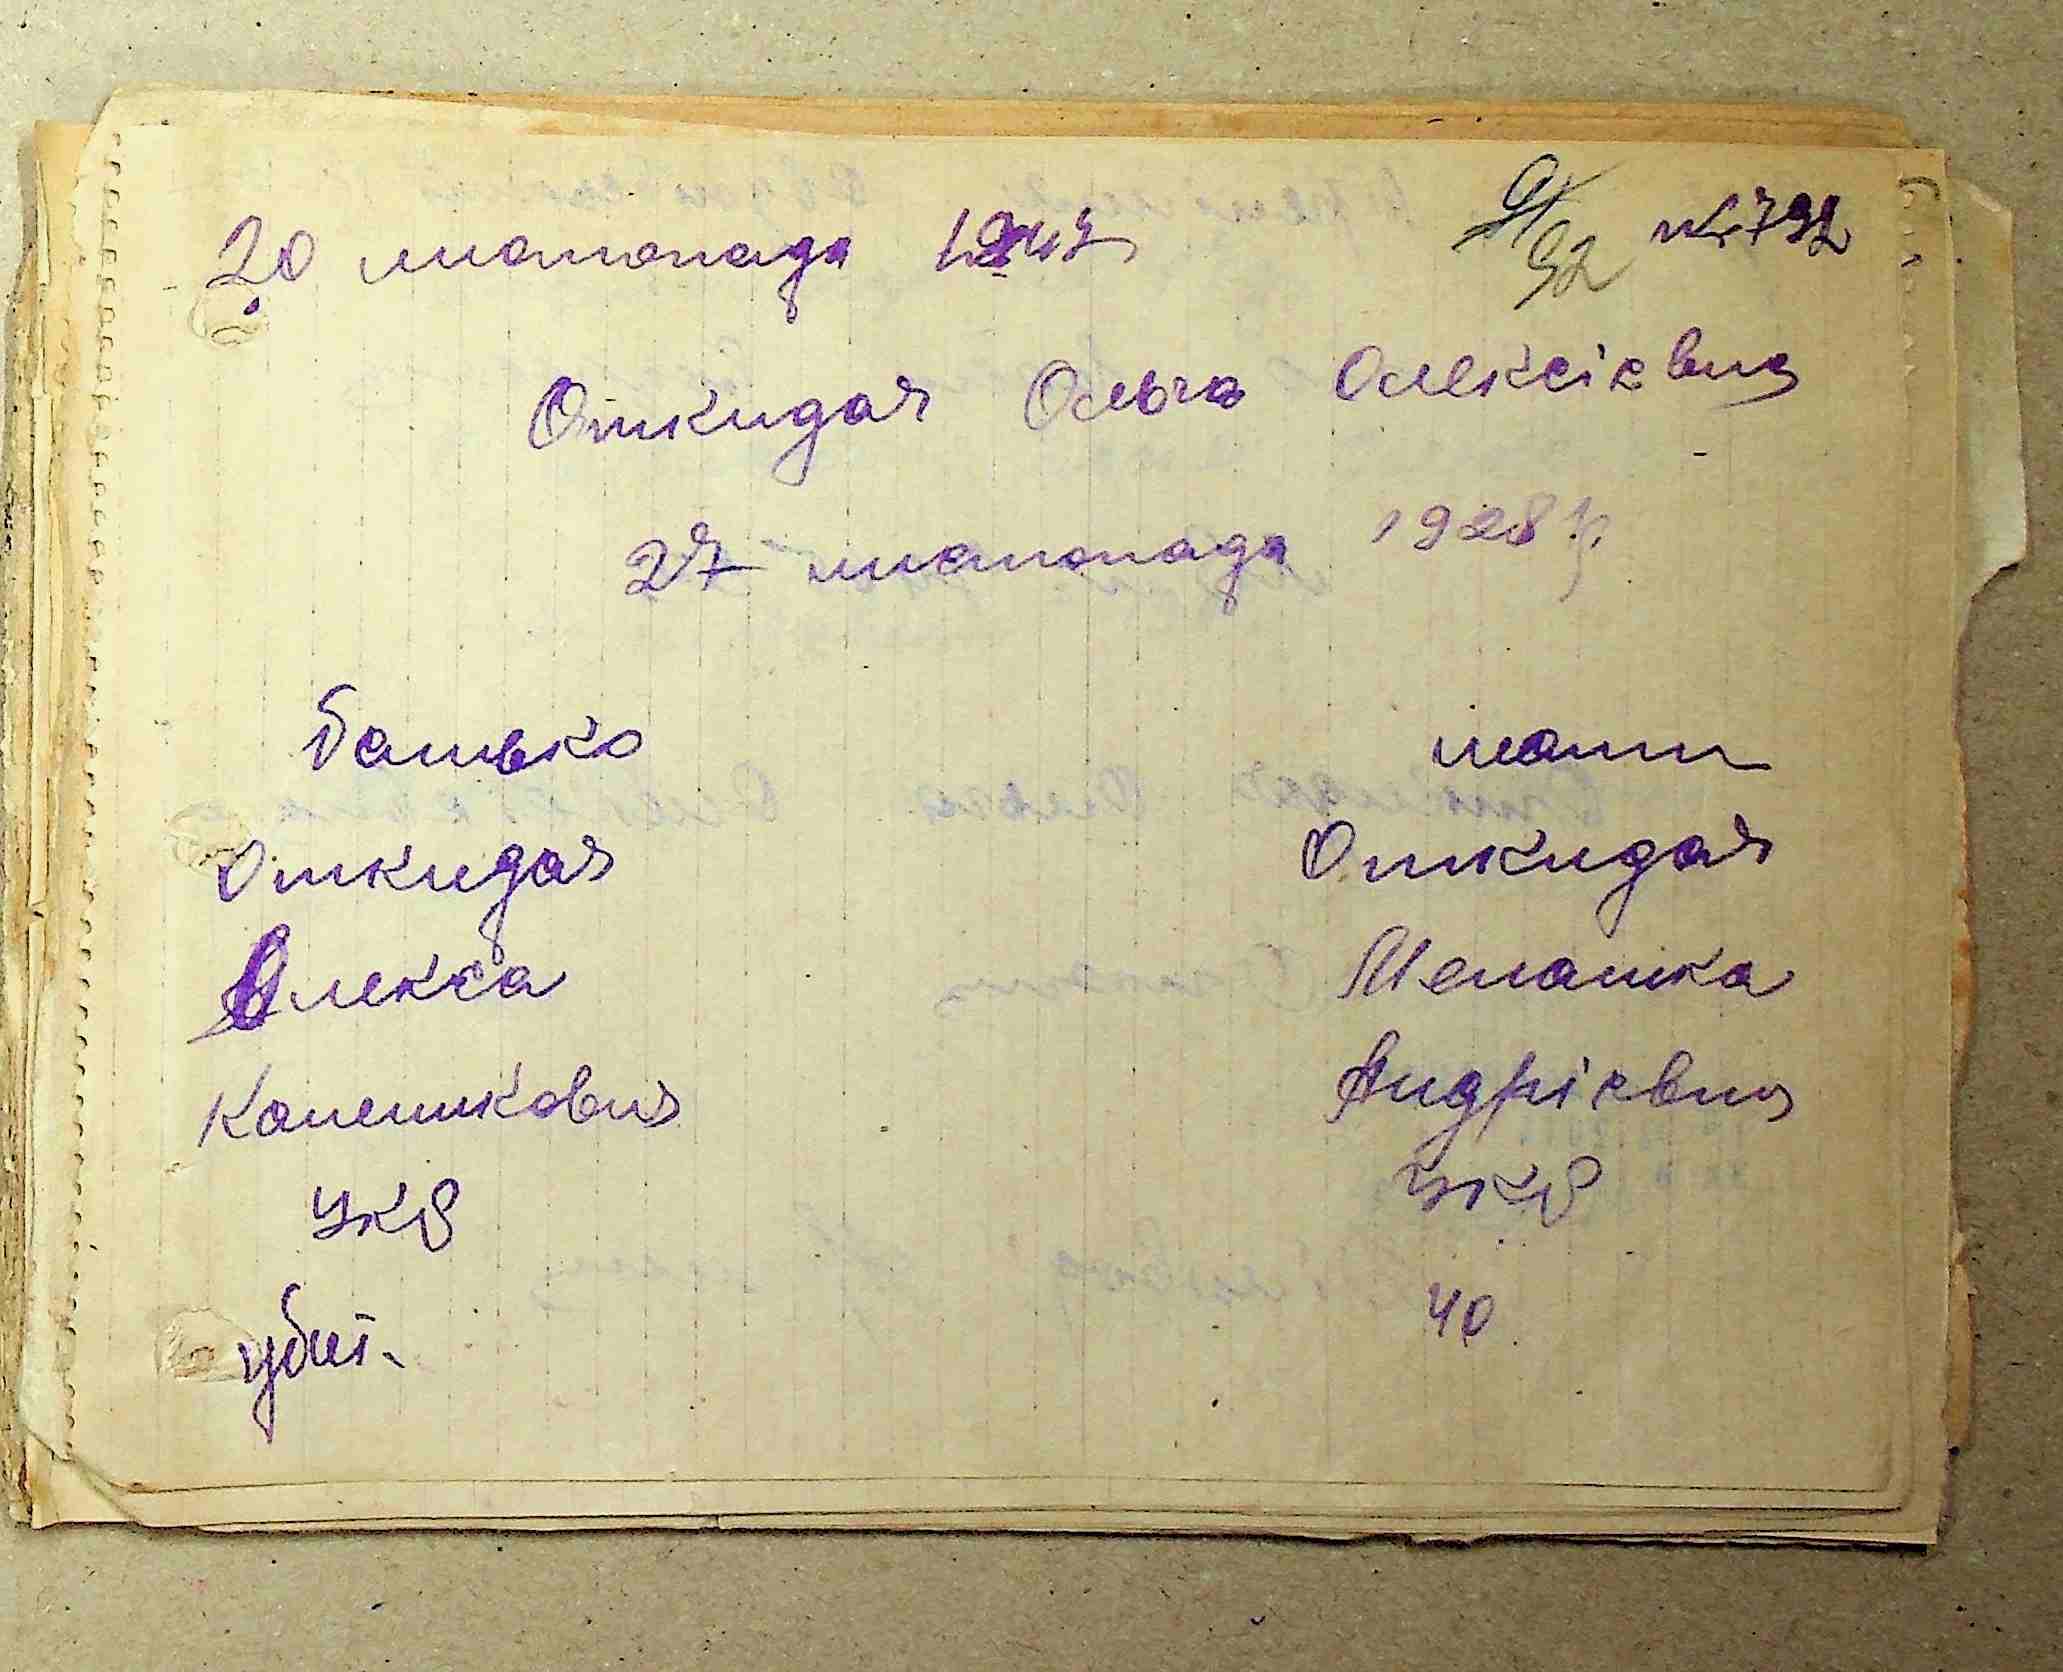 20 листопада 1943 № 792
92
Откидач Ольга Олексієвна
27 листопада 1928 р.
батько мати
Откидач Откидач
Олекса Меланка
Каленикович Андрієвна
укр укр
убит. 40